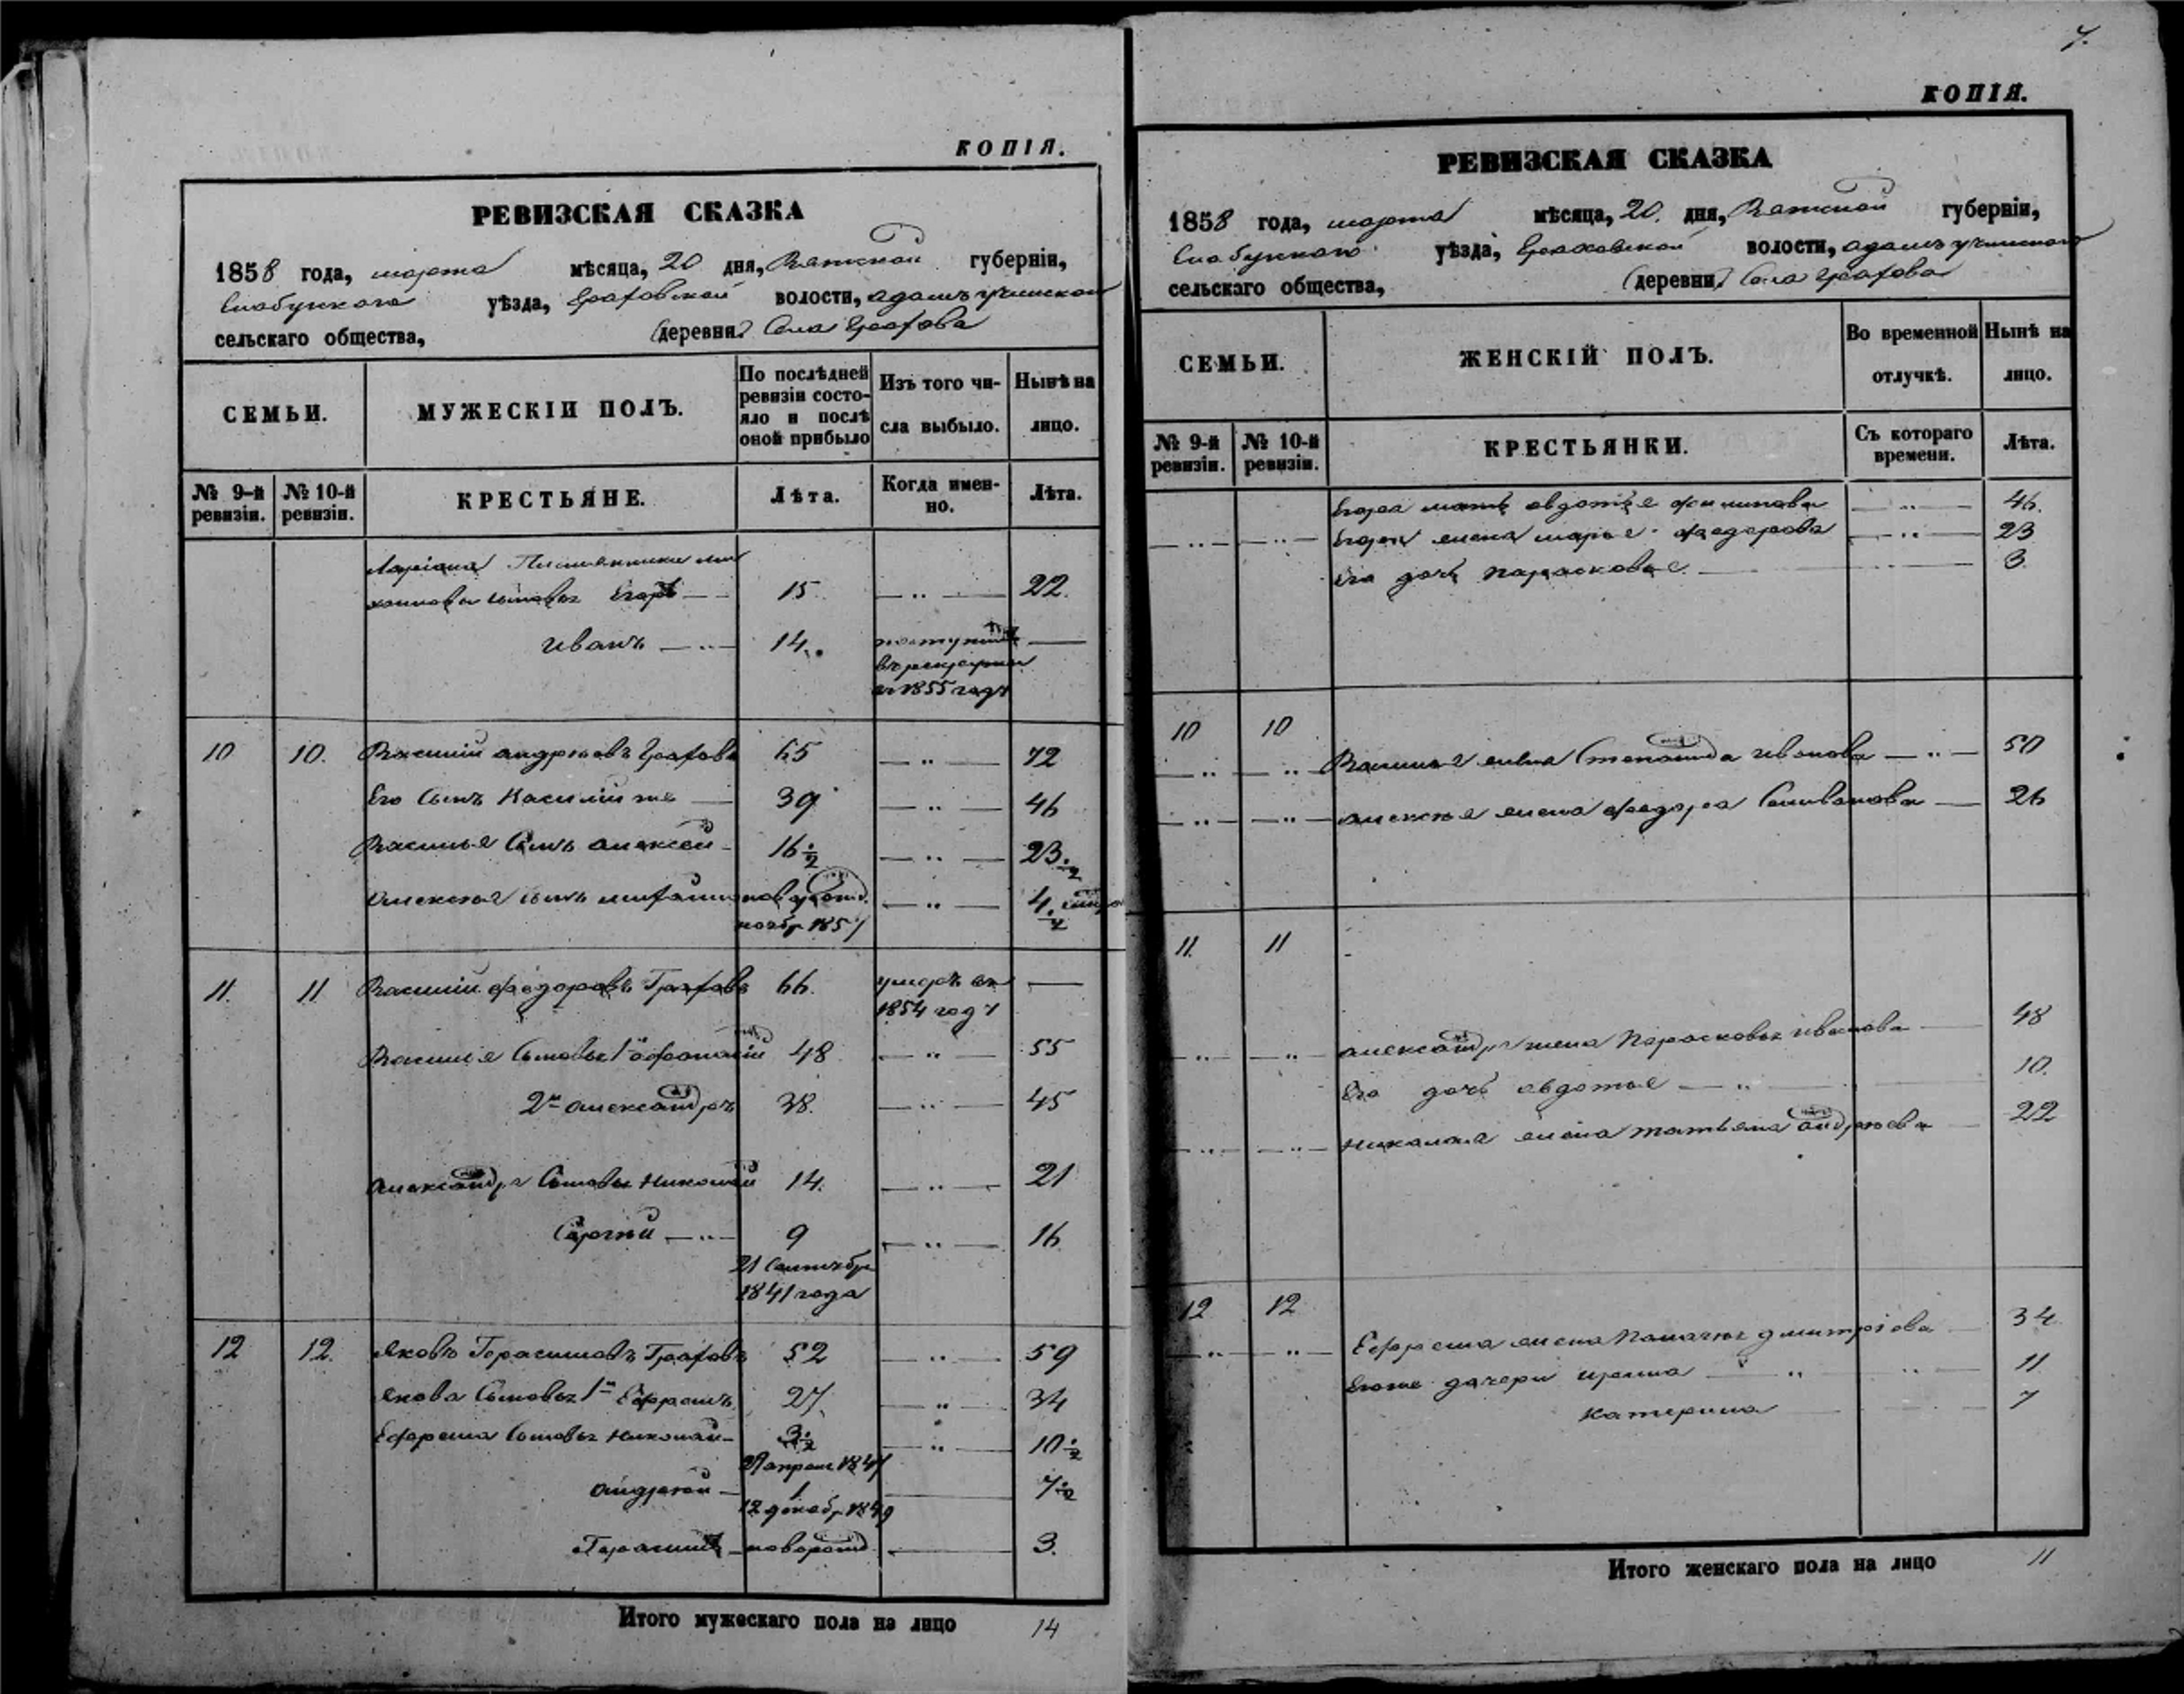 КОПІЯ.
РЕВИЗСКАЯ СКАЗКА
1858 года, марта мѣсяца, 20 дня, Вятской губерніи,
Елабускаго уѣзда, Граховской волости,
сельскаго общества, (деревни) Села Грахова
СЕМЬИ.
МУЖЕСКІЙ ПОЛЪ.
По послѣдней ревизіи состо-
яло и послѣ оной прибыло
Изъ того чи-
сла выбыло.
Нынѣ на
лицо.
№ 9-й ревизіи.
№ 10-й ревизіи.
КРЕСТЬЯНЕ.
Лѣта.
Когда имен-
но.
Лѣта.
Ларіона
сыновья Егоръ 15 22.
Иванъ 14. поступилъ
въ рекруты
въ 1855 году
10 10. Василій Андреевъ Граховъ 65 72
Его Сынъ Василій же 39 46
Василья Сынъ Алексей 16½ 23½
Алексея сынъ новорожд. 4
ноябр 1857
11. 11 Василій Федоровъ Граховъ 66. умеръ въ
1854 году
Василья Сыновья 1й Афонасій 48 55
2й Александръ 38. 45
Александра Сыновья Николай 14. 21
Сергей 9 16
21 Сентебр
1841 года
12 12. Яковъ Герасимовъ Граховъ 52 59
Якова Сыновья 1й Ефремъ 27. 34
Ефрема Сыновья Николай 3½ 10½
апреля 1847
Андрей 1 7½
12 декабр 1849
Герасимъ новорожд 3.
Итого мужескаго пола на лицо 14
7.
КОПІЯ.
РЕВИЗСКАЯ СКАЗКА
1858 года, марта мѣсяца, 20. дня, Вятской губерніи,
Елабускаго уѣзда, Граховской волости,
сельскаго общества, (деревни) Села Грахова
СЕМЬИ.
ЖЕНСКІЙ ПОЛЪ.
Во временной
отлучкѣ.
Нынѣ на
лицо.
№ 9-й ревизіи.
№ 10-й ревизіи.
КРЕСТЬЯНКИ.
Съ котораго
времени.
Лѣта.
Егора мать Авдотья Филипова 46.
Егора жена Марья Федорова 23
Его дочь Парасковья 3
10 10
Василья жена Степанида Иванова 50
Алексея жена Федора Селиванова 26
11. 11
Александра жена Парасковья Иванова 48
Его дочь Авдотья 10.
Николая жена Татьяна Андреева 22
12 12
Ефрема жена Пелагея Дмитріева 34
Егоже дочери Ирина 11
Катерина 7
Итого женскаго пола на лицо 11